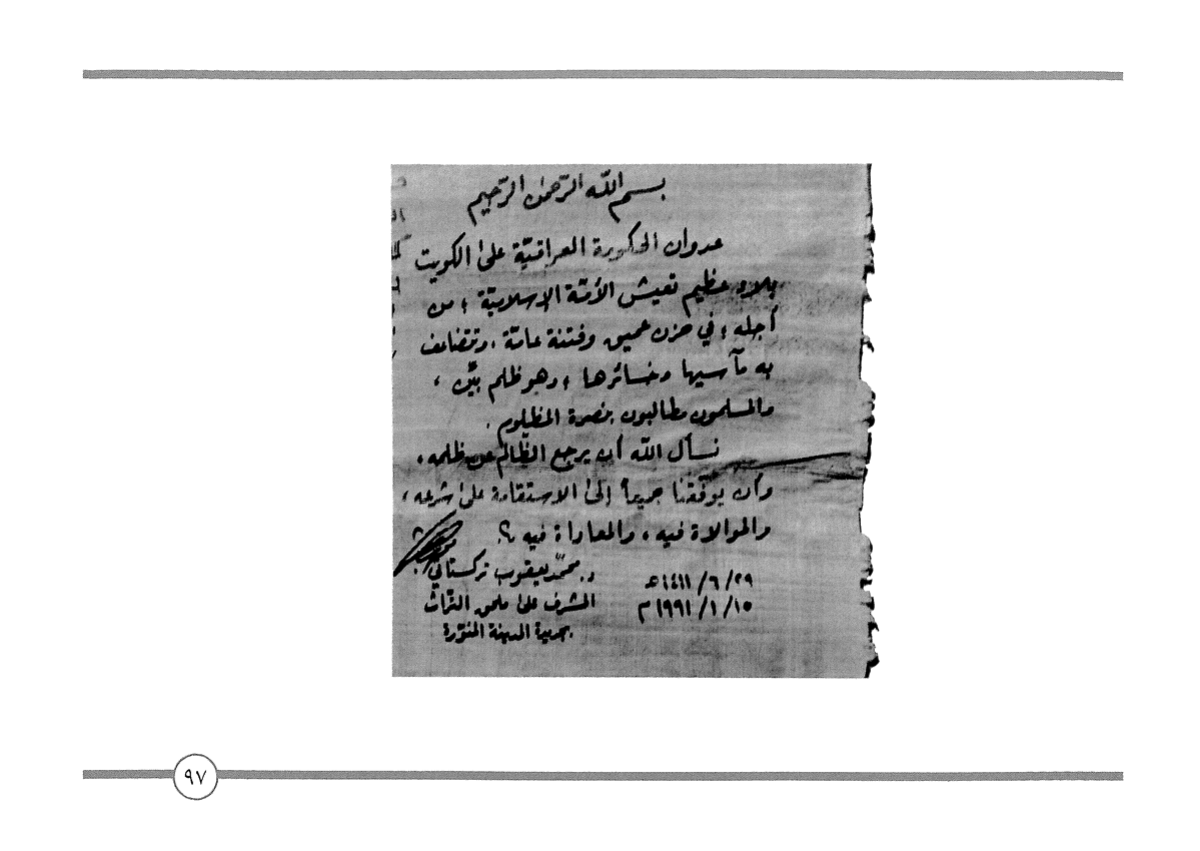 بسم الله الرّحمن الرّحيم
عدوان الحكومة العراقيّة على الكويت
بلاء عظيم تعيش الأمّة الإسلاميّة ، من
أجله ، في حزن عميق وفتنة عامّة ، وتتضاعف
به مآسيها وخسائرها ، وهو ظلم بيّن ،
والمسلمون مطالبون بنصرة المظلوم .
نسأل الله أن يرجع الظّالم عن ظلمه ،
وأن يوفّقنا جميعاً إلى الاستقامة على شرعه ،
والموالاة فيه ، والمعاداة فيه ؟.
د. محمّد يعقوب تركستاني
٢٩/ ٦/ ١٤١١هـ
المشرف على ملحق التّراث
١٥/ ١/ ١٩٩١م
بجريدة المدينة المنوّرة
٩٧